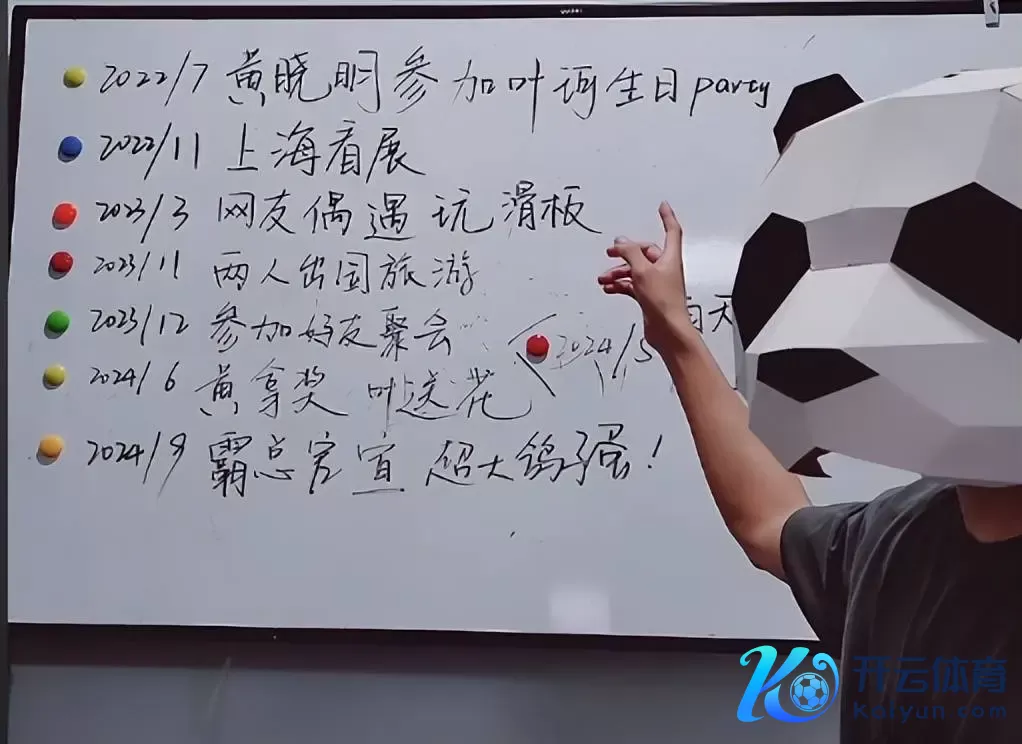 2022/7 黄晓明参加叶珂生日party
2022/11 上海看展
2023/3 网友偶遇 玩滑板
2023/11 两人出国旅游
2023/12 参加好友聚会
2024/5 雨天
2024/6 黄拿奖 叶送花
2024/9 霸总官宣 超大鸽子蛋!
开云体育
Kaiyun.com